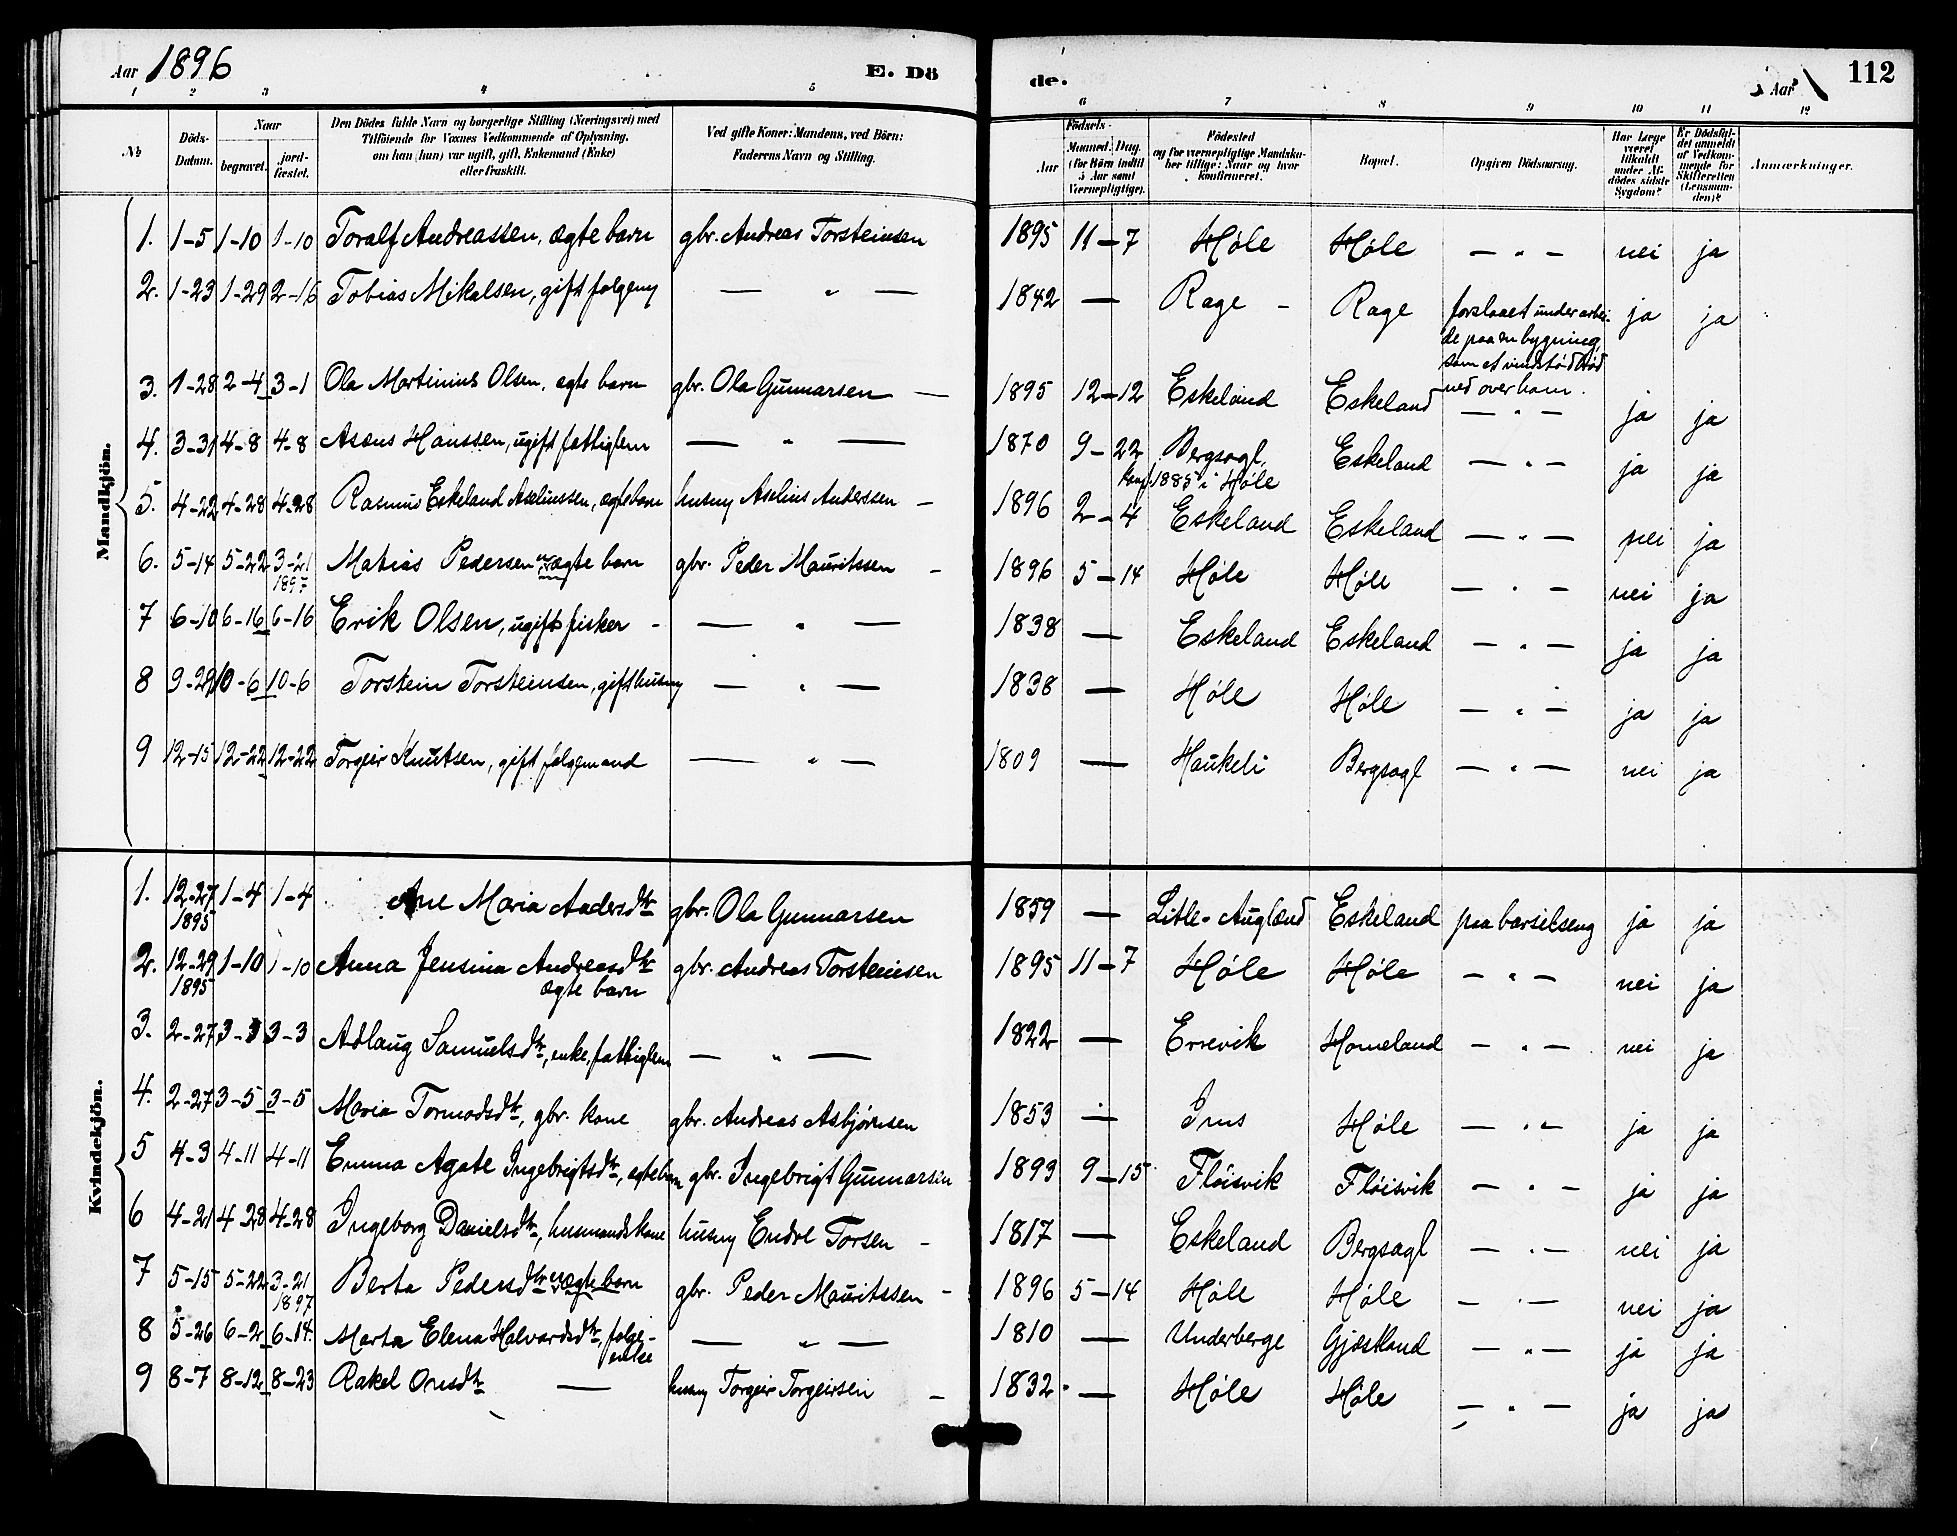 Aar 1896
E. Dö
de.
i Aar
112
1 2 3 4 5 6 7 8 9 10 11 12
№
Döds-Datum.
Naar
begravet.
jord-fæstet.
Den Dödes fulde Navn og borgerlige Stilling (Næringsvei) med
Tilföiende for Voxnes Vedkommende af Oplysning,
om han (hun) var ugift, gift, Enkemand (Enke)
eller fraskilt.
Ved gifte Koner: Mandens, ved Börn:
Faderens Navn og Stilling.
Födsels-
Aar
Maaned. Dag.
(for Börn indtil
5 Aar samt
Værnepligtige).
Födested
og for værnepligtige Mandska-
ber tillige: Naar og hvor
konfirmeret.
Bopæl.
Opgiven Dödsaarsag.
Har Læge
været
tilkaldt
under Af-
dödes sidste
Sygdom?
Er Dödsfal-
det anmeldt
af Vedkom-
mende for
Skifteretten
(Lensman-
den)?
Anmærkninger.
Mandkjön.
1. 1-5 1-10 1-10 Toralf Andreassen, ægte barn gbr. Andreas Torsteinsen 1895 11-7 Høle Høle — " — nei ja
2. 1-23 1-29 2-16 Tobias Mikalsen, gift folgemg — " — 1842 — Rage - Rage forslaaet under arbei-
de paa en bygning,
som et vindstød
ned over ham. ja ja
3. 1-28 2-4 3-1 Ola Martinius Olsen, ægte barn gbr. Ola Gunnarsen — 1895 12-12 Eskeland Eskeland — " — ja ja
4. 3-31 4-8 4-8 Asæus Hanssen, ugift fattiglem — " — 1870 9-22 Bergsagl,
konf. 1885 i Høle Eskeland — " — ja ja
5. 4-22 4-28 4-28 Rasmus Eskeland Aseliussen, ægte barn husmg Aselius Anderssen — 1896 2-4 Eskeland Eskeland — " — nei ja
6. 5-14 5-22 3-21
1897 Matias Pedersen uægte barn gbr. Peder Mauritssen - 1896 5-14 Høle Høle — " — nei ja
7 6-10 6-16 6-16 Erik Olsen, ugift fisker - — " — 1838 — Eskeland Eskeland — " — ja ja
8 9-29 10-6 10-6 Torstein Torsteinsen, gift husmg — " — 1838 — Høle Høle — " — ja ja
9 12-15 12-22 12-22 Torgeir Knutsen, gift følgemand — " — 1809 — Haukeli Bergsagl — " — nei ja
Kvindekjön.
1. 12-27
1895 1-4 1-4 Ane Maria Andersdtr gbr. Ola Gunnarsen 1859 — Litle-Augland Eskeland paa barselseng ja ja
2. 12-29
1895 1-10 1-10 Anna Jensina Andreasdtr
ægte barn gbr. Andreas Torsteinsen 1895 11-7 Høle Høle — " — nei ja
3. 2-27 3-3 3-3 Adlaug Samuelsdtr, enke, fattiglem — " — 1822 — Errevik Homeland — " — nei ja
4. 2-27 3-5 3-5 Maria Tormodsdtr, gbr. kone gbr. Andreas Asbjørnsen 1853 — Ims Høle — " — ja ja
5 4-3 4-11 4-11 Emma Agate Ingebrigtsdtr, ægte barn gbr. Ingebrigt Gunnarsen 1893 9-15 Fløisvik Fløisvik — " — ja ja
6 4-21 4-28 4-28 Ingeborg Danielsdtr, husmandskone husmg Endre Torsen - 1817 — Eskeland Bergsagl — " — nei ja
7 5-15 5-22 3-21
1897 Berta Pedersdtr uægte barn gbr. Peder Mauritssen - 1896 5-14 Høle Høle — " — nei ja
8 5-26 6-2 6-14. Marta Elena Halvardsdtr, følge-
enke — " — 1810 — Underberge Gjøsland — " — ja ja
9 8-7 8-12 8-23 Rakel Omsdtr — husmg Torgeir Torgeirsen - 1832 — Høle Høle — " — ja ja